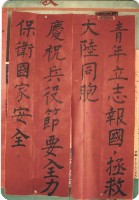 青年立志報國,拯救
大陸同胞
慶祝兵役節要全力
保衛國家安全